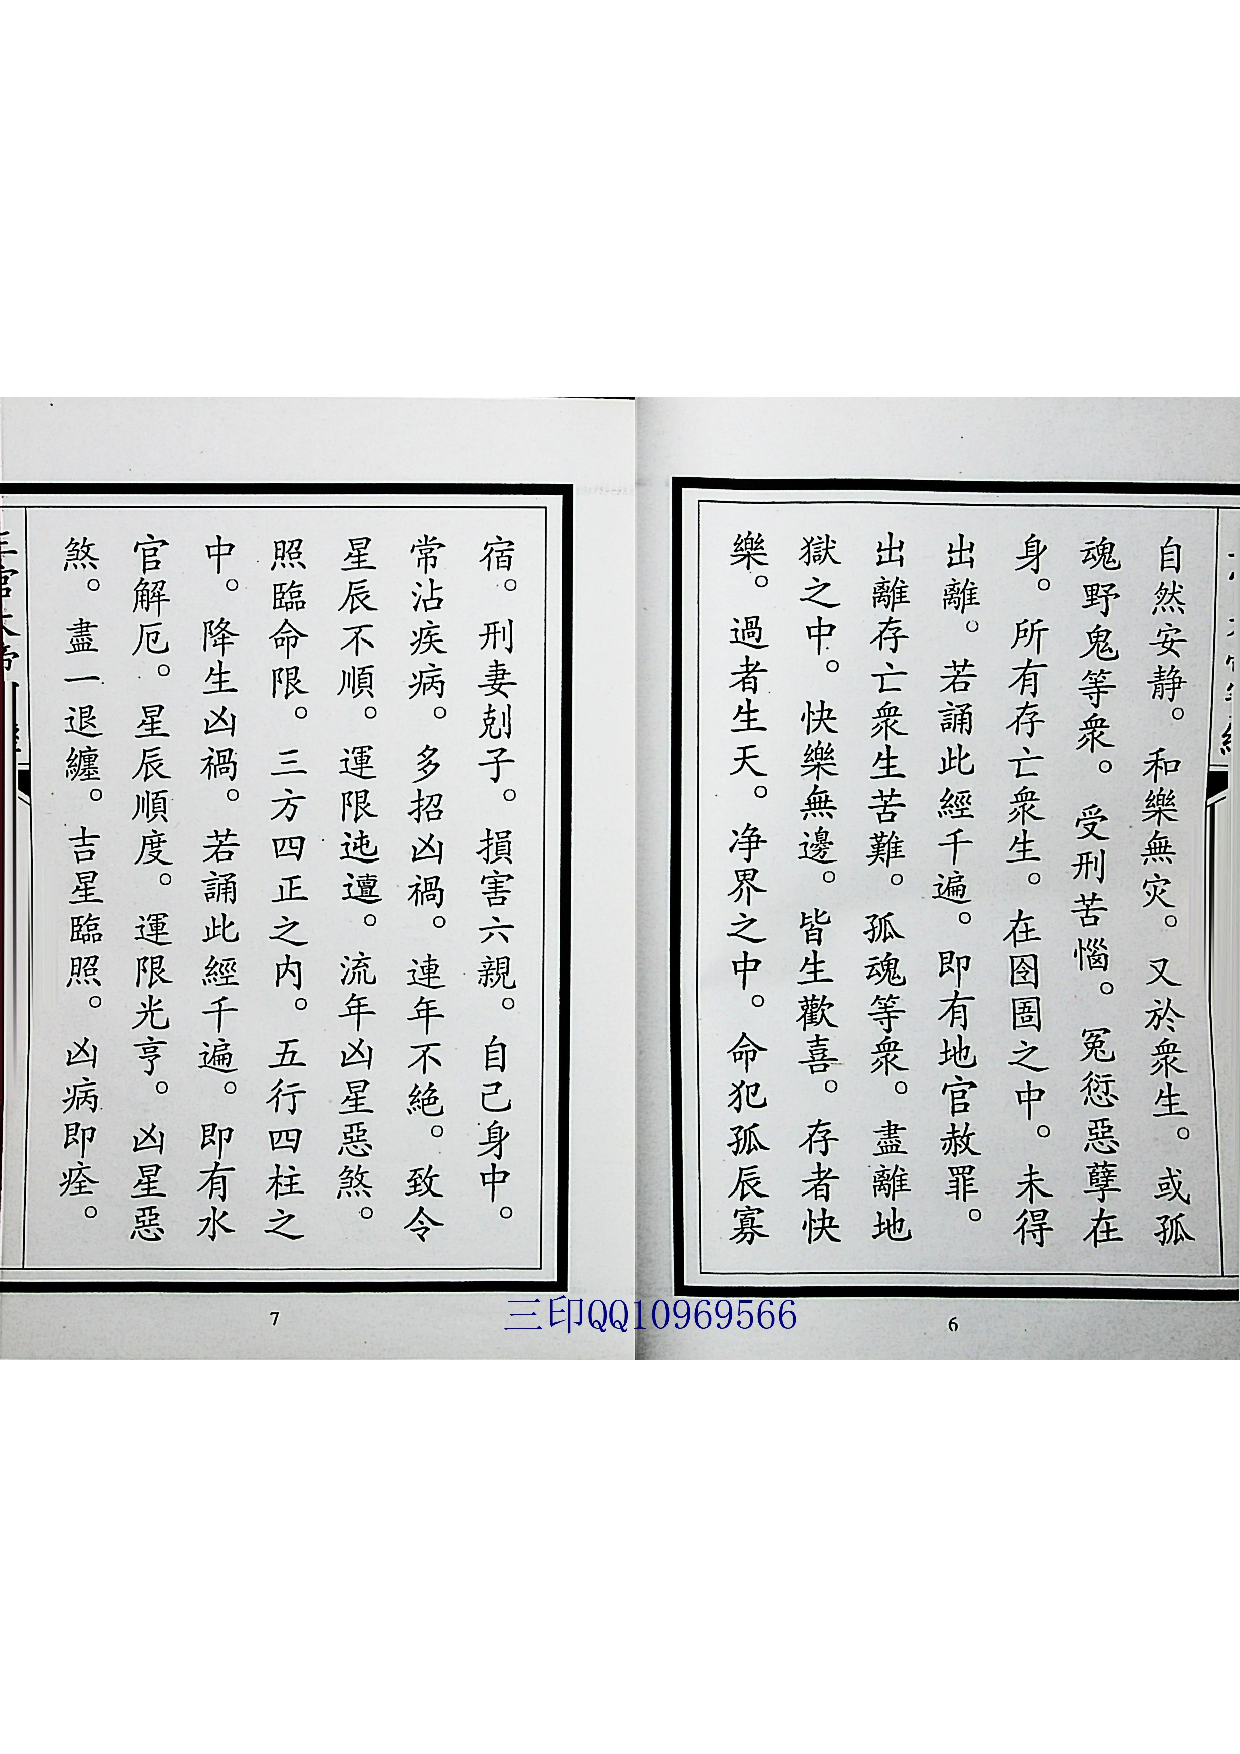 自然安静。和樂無灾。又於衆生。或孤
魂野鬼等衆。受刑苦惱。冤愆惡孽在
身。所有存亡衆生。在囹圄之中。未得
出離。若誦此經千遍。即有地官赦罪。
出離存亡衆生苦難。孤魂等衆。盡離地
獄之中。快樂無邊。皆生歡喜。存者快
樂。過者生天。净界之中。命犯孤辰寡
6
宿。刑妻剋子。損害六親。自己身中。
常沾疾病。多招凶禍。連年不絕。致令
星辰不順。運限迍邅。流年凶星惡煞。
照臨命限。三方四正之内。五行四柱之
中。降生凶禍。若誦此經千遍。即有水
官解厄。星辰順度。運限光亨。凶星惡
煞。盡一退纏。吉星臨照。凶病即痊。
7
三印QQ10969566